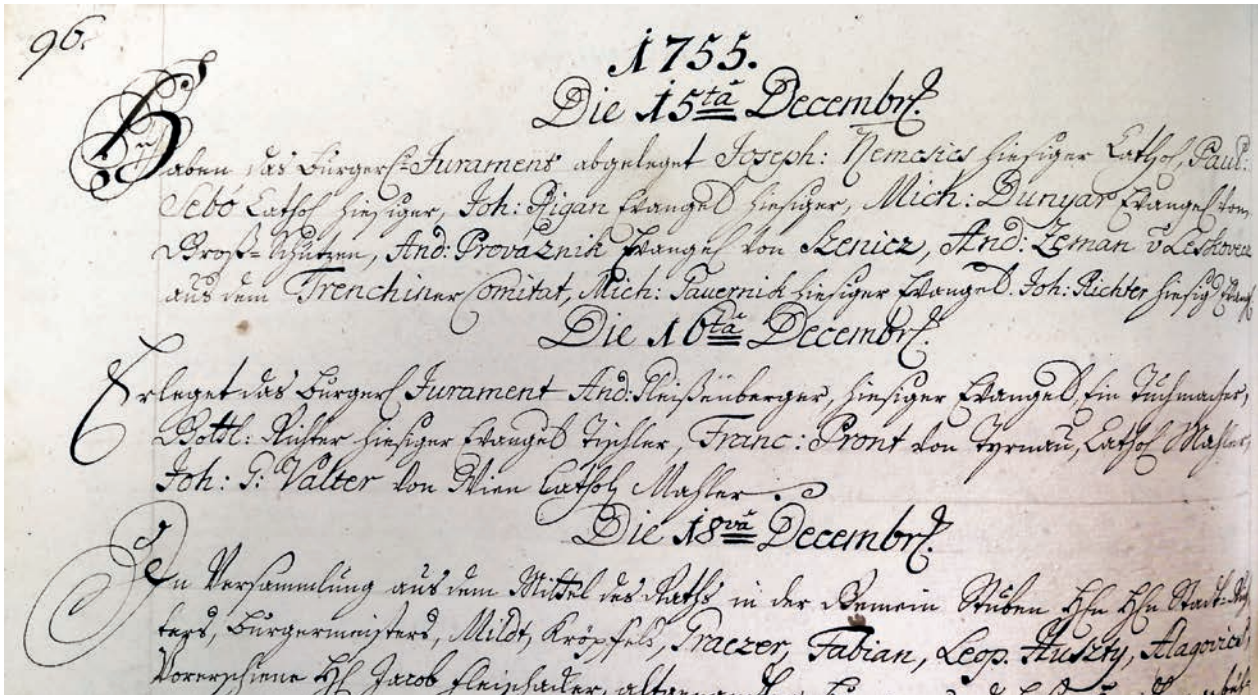 96.
1755.
Die 15ta Decembr.
Haben das Bürgerl: Jurament abgeleget Joseph: Nemesics hiesiger Cathol, Paul:
Sebö Cathol hiesiger, Joh: Rigan Evangel hiesiger, Mich: Dunyar Evangel von
Groß-Schützen, And: Provaznik Evangel von Szenicz, And: Zeman v Leskovecz
aus dem Trenchiner Comitat, Mich: Pauernik hiesiger Evangel. Joh: Richter hiesig Evangl
Die 16ta Decembr.
Erleget das Bürgerl Jurament And: Pleißenberger, hiesiger Evangel, Ein Tuchmacher,
Gottl: Richter hiesiger Evangel Tischler, Franc: Pront von Tyrnau, Cathol Mahler,
Joh: G: Valter von Wien Cathol Mahler.
Die 18va Decembr.
In Versammlung aus dem Mittel des Raths in der Gemein Stuben Hln Hln Stadt-Rich
ters, Bürgermeisters, Mildt, Kröpfels, Traczer, Fabian, Leop. Huszty, Alagovics,
Vorerschiene Hl Jacob Fleischacker,